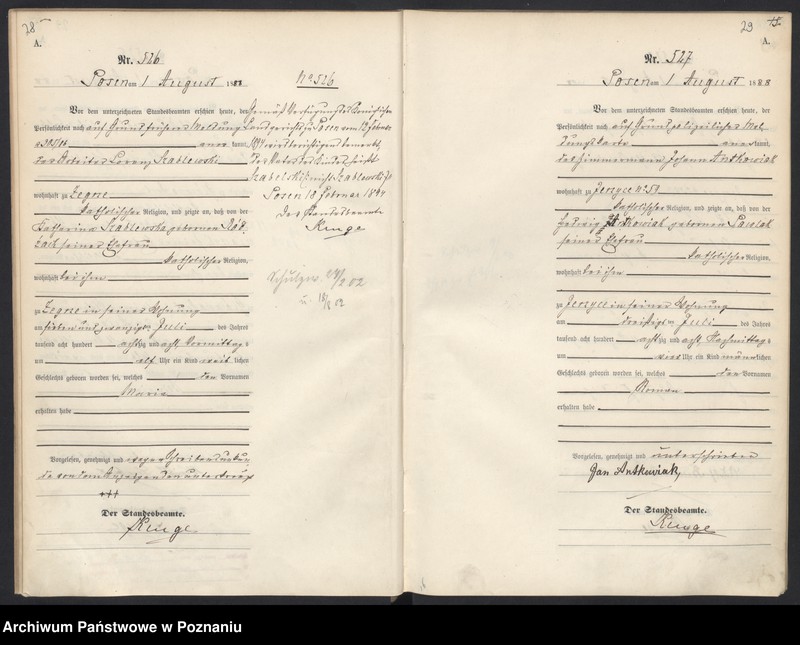 28
A.
Nr. 526
Posen am 1 August 1888
Vor dem unterzeichneten Standesbeamten erschien heute, der
Persönlichkeit nach auf Grund früherer Meldung
kannt,
der Arbeiter Lorenz Szablewski
wohnhaft zu Zegrze
katholischer Religion, und zeigte an, daß von der
Katharina Szablewska gebornen
seiner Ehefrau
katholischer Religion,
wohnhaft bei ihm
zu Zegrze in seiner Wohnung
am sieben und zwanzigsten Juli des Jahres
tausend acht hundert achtzig und acht Vormittags
um elf Uhr ein Kind weiblichen
Geschlechts geboren worden sei, welches den Vornamen
Maria
erhalten habe
Vorgelesen, genehmigt und wegen Schreibensunkun
de von dem Anzeigenden unterkreuzt
+++
Der Standesbeamte.
Runge
No 526
Gemäß Verfügung des Königlichen
Landgerichts zu Posen vom 12 Februar
1894 wird berichtigend bemerkt,
der Vater des Kindes heißt
Szabelski nicht Szablewski
Posen 18 Februar 1894
Der Standesbeamte
Runge
29
A.
Nr. 527
Posen am 1 August 1888
Vor dem unterzeichneten Standesbeamten erschien heute, der
Persönlichkeit nach auf Grund polizeilicher Mel
dungskarte anerkannt,
der Zimmermann Johann Antkowiak
wohnhaft zu Jerzyce No 59
katholischer Religion, und zeigte an, daß von der
Hedwig Antkowiak gebornen Pawlak
seiner Ehefrau
katholischer Religion,
wohnhaft bei ihm
zu Jerzyce in seiner Wohnung
am dreißigsten Juli des Jahres
tausend acht hundert achtzig und acht Nachmittags
um vier Uhr ein Kind männlichen
Geschlechts geboren worden sei, welches den Vornamen
Roman
erhalten habe
Vorgelesen, genehmigt und unterschrieben
Jan Antkowiak,
Der Standesbeamte.
Runge
Archiwum Państwowe w Poznaniu